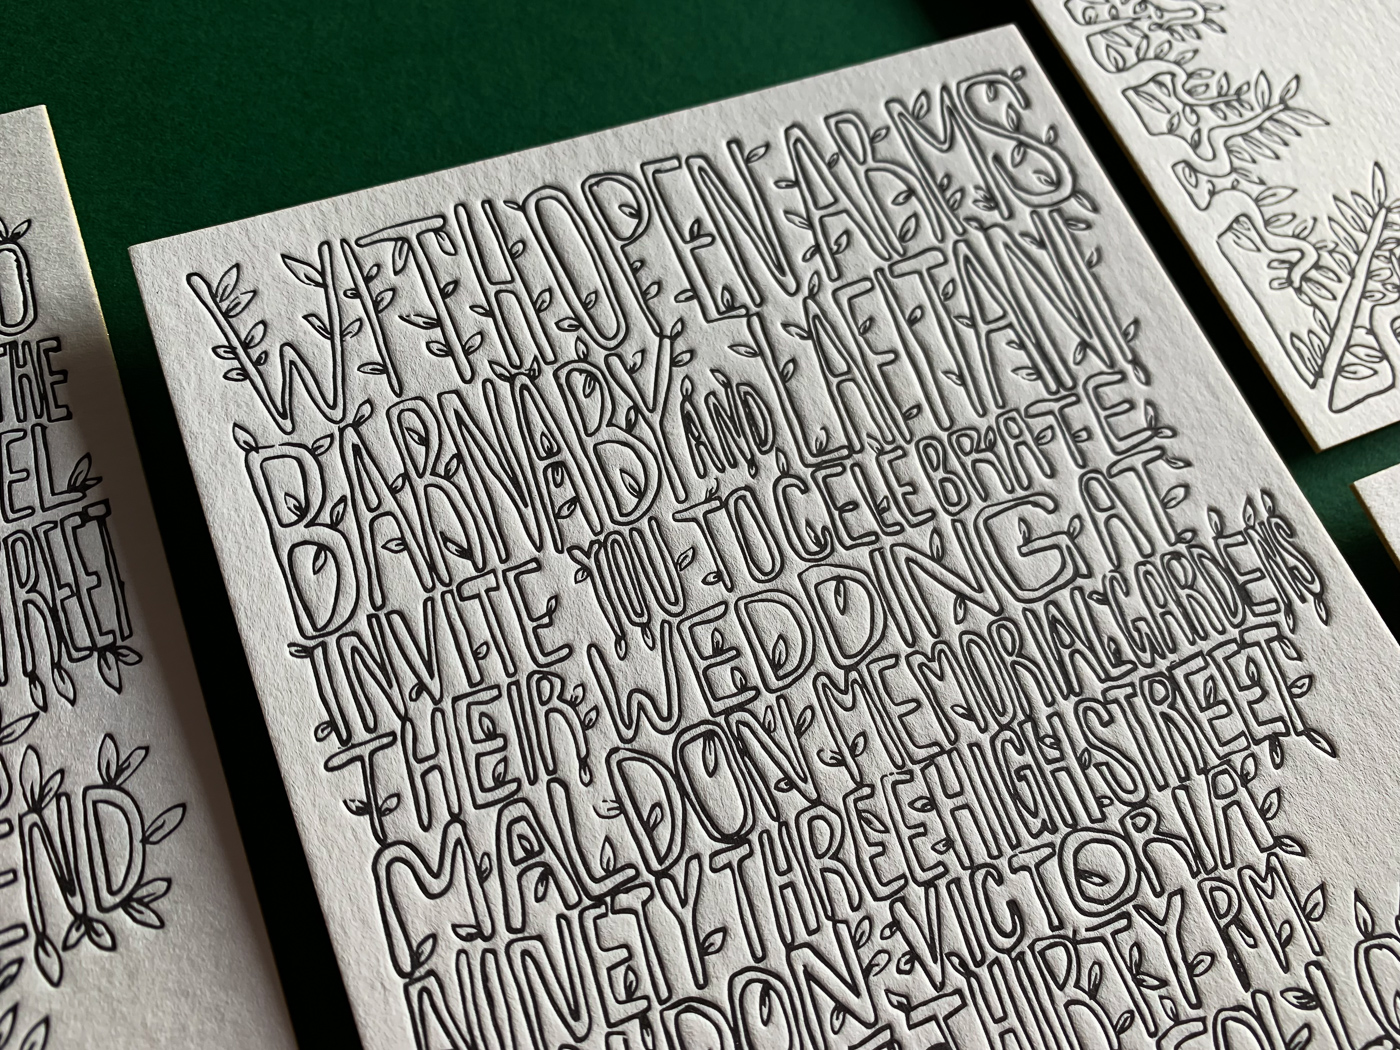 THE
EL
STREET
END
WITH OPEN ARMS
BARNABY AND LAFITANI
INVITE YOU TO CELEBRATE
THEIR WEDDING AT
MALDON MEMORIAL GARDENS
NINETY THREE HIGH STREET
MALDON VICTORIA
THIRTY PM